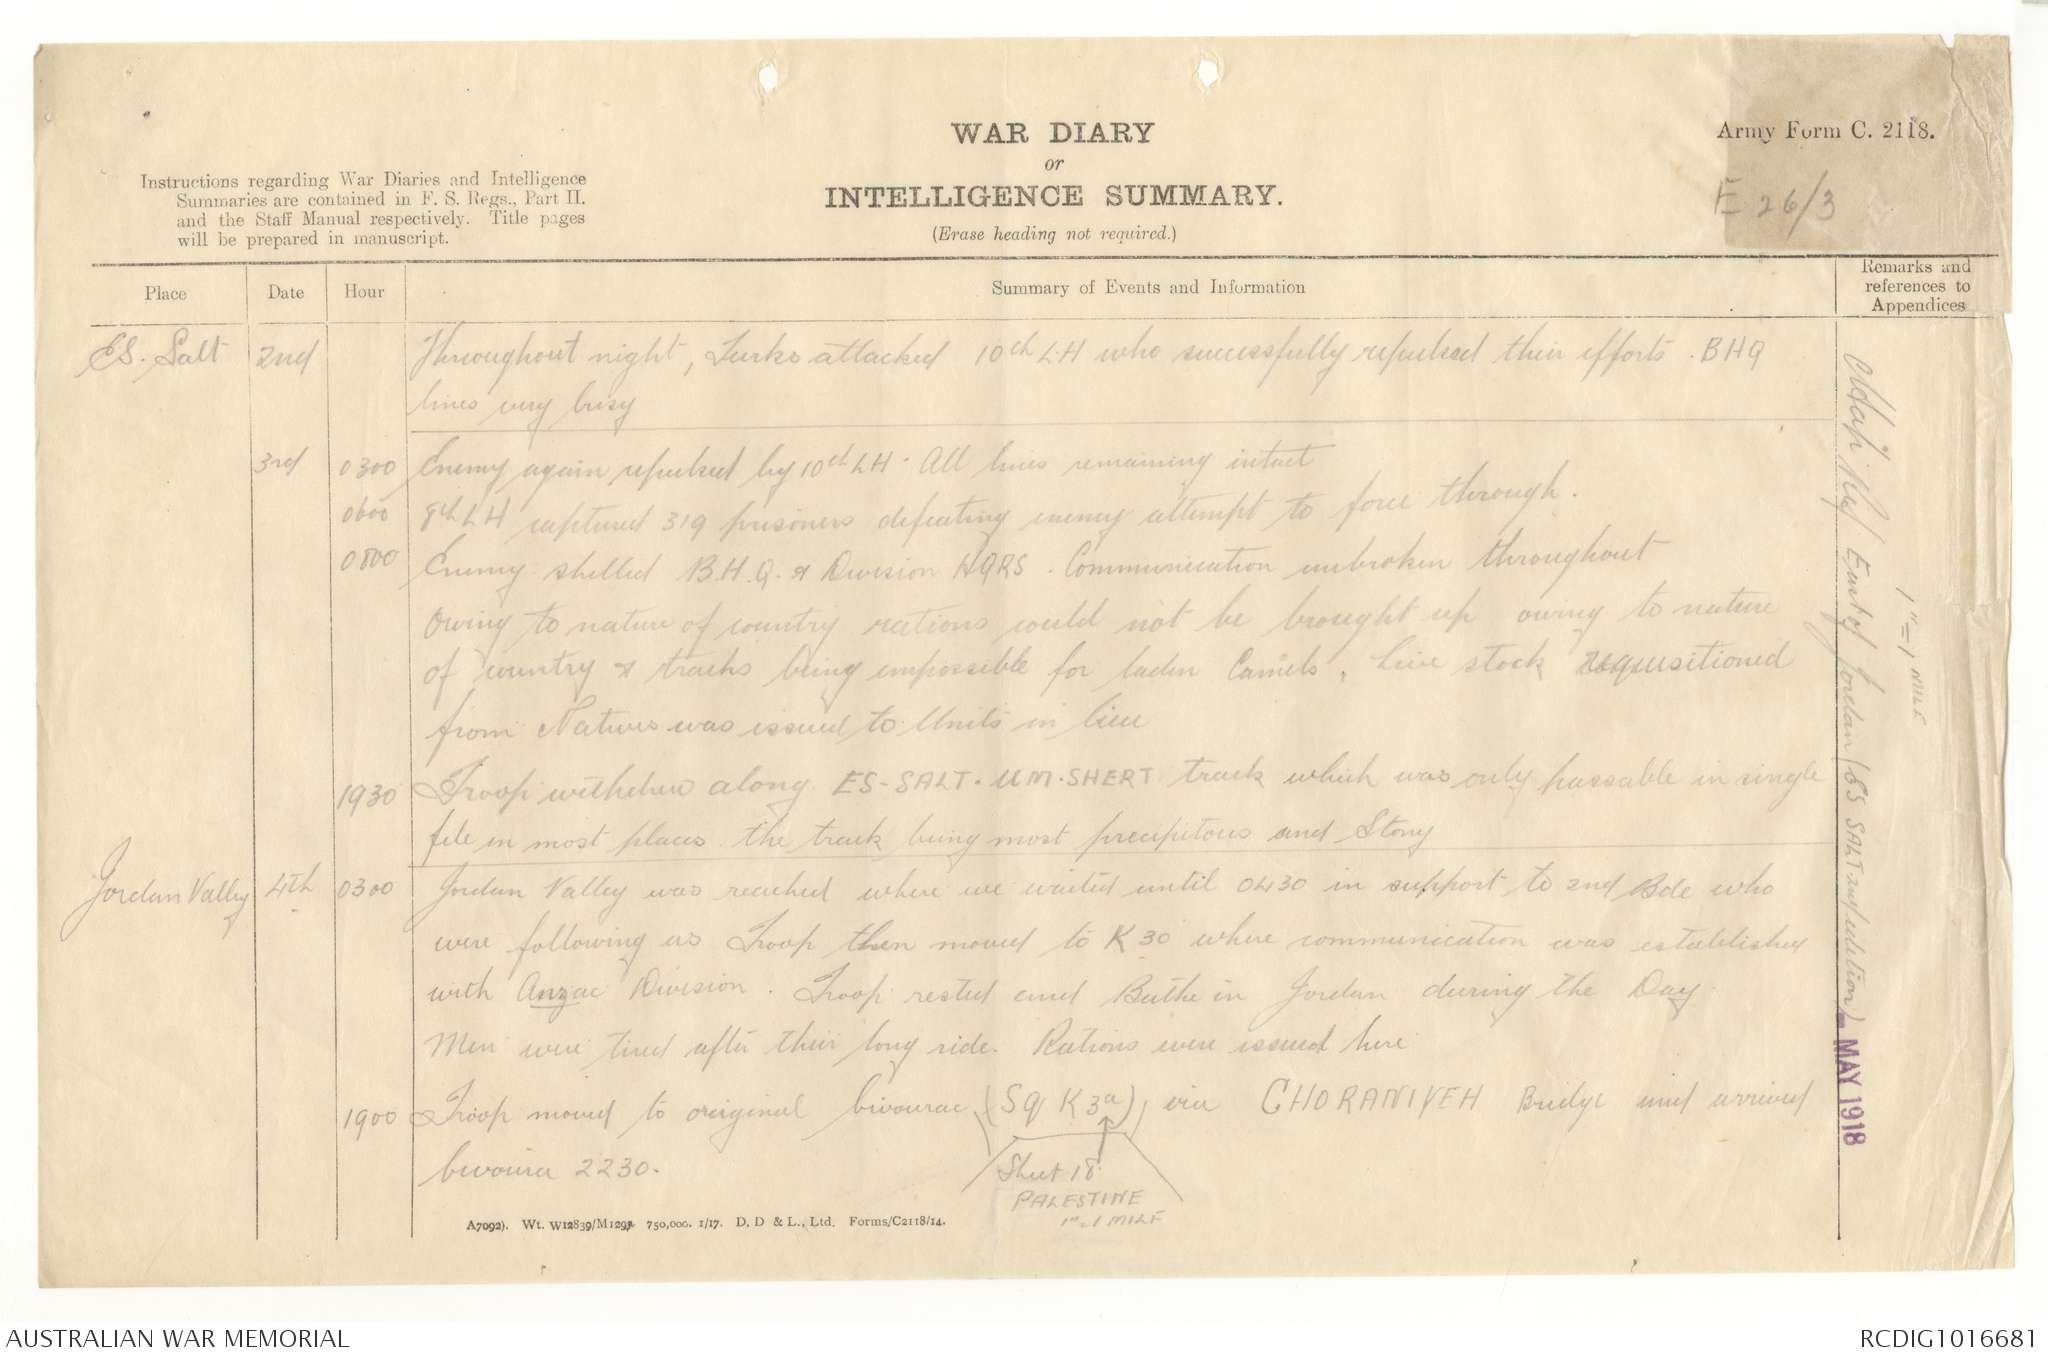 WAR DIARY
or
INTELLIGENCE SUMMARY.
(Erase heading not required.)
Army Form C. 2118.
E 26/3
Instructions regarding War Diaries and Intelligence
Summaries are contained in F. S. Regs., Part II.
and the Staff Manual respectively. Title pages
will be prepared in manuscript.
Place Date Hour Summary of Events and Information Remarks and references to Appendices
ES. Salt 2nd Throughout night, Turks attacked 10th LH who successfully repulsed their efforts. BHQ
lines very busy
3rd 0300 Enemy again repulsed by 10th LH. All lines remaining intact
0600 8th LH captured 319 prisoners defeating enemy attempt to force through.
0800 Enemy shelled B.H.Q. & Division HQRS. Communication unbroken throughout
Owing to nature of country rations could not be brought up owing to nature
of country & tracks being impossible for laden Camels. Live stock requisitioned
from Natives was issued to Units in lieu
1930 Troop withdrew along ES-SALT-UM-SHERT track which was only passable in single
file in most places. the track being most precipitous and Stony
Jordan Valley 4th 0300 Jordan Valley was reached where we waited until 0430 in support to 2nd Bde who
were following us Troop then moved to K 30 where communication was established
with Anzac Division. Troop rested and Bathe in Jordan during the Day.
Men were tired after their long ride. Rations were issued here
1900 Troop moved to original bivouac (Sq K 3a), via GHORANIYEH Bridge and arrived
bivouac 2230.
Sheet 18
PALESTINE
1"=1 MILE
Map Ref East of Jordan (ES SALT and edition)
1"=1 MILE
MAY 1918
A7092). Wt. W12839/M1293 750,000. 1/17. D. D & L., Ltd. Forms/C2118/14.
AUSTRALIAN WAR MEMORIAL
RCDIG1016681